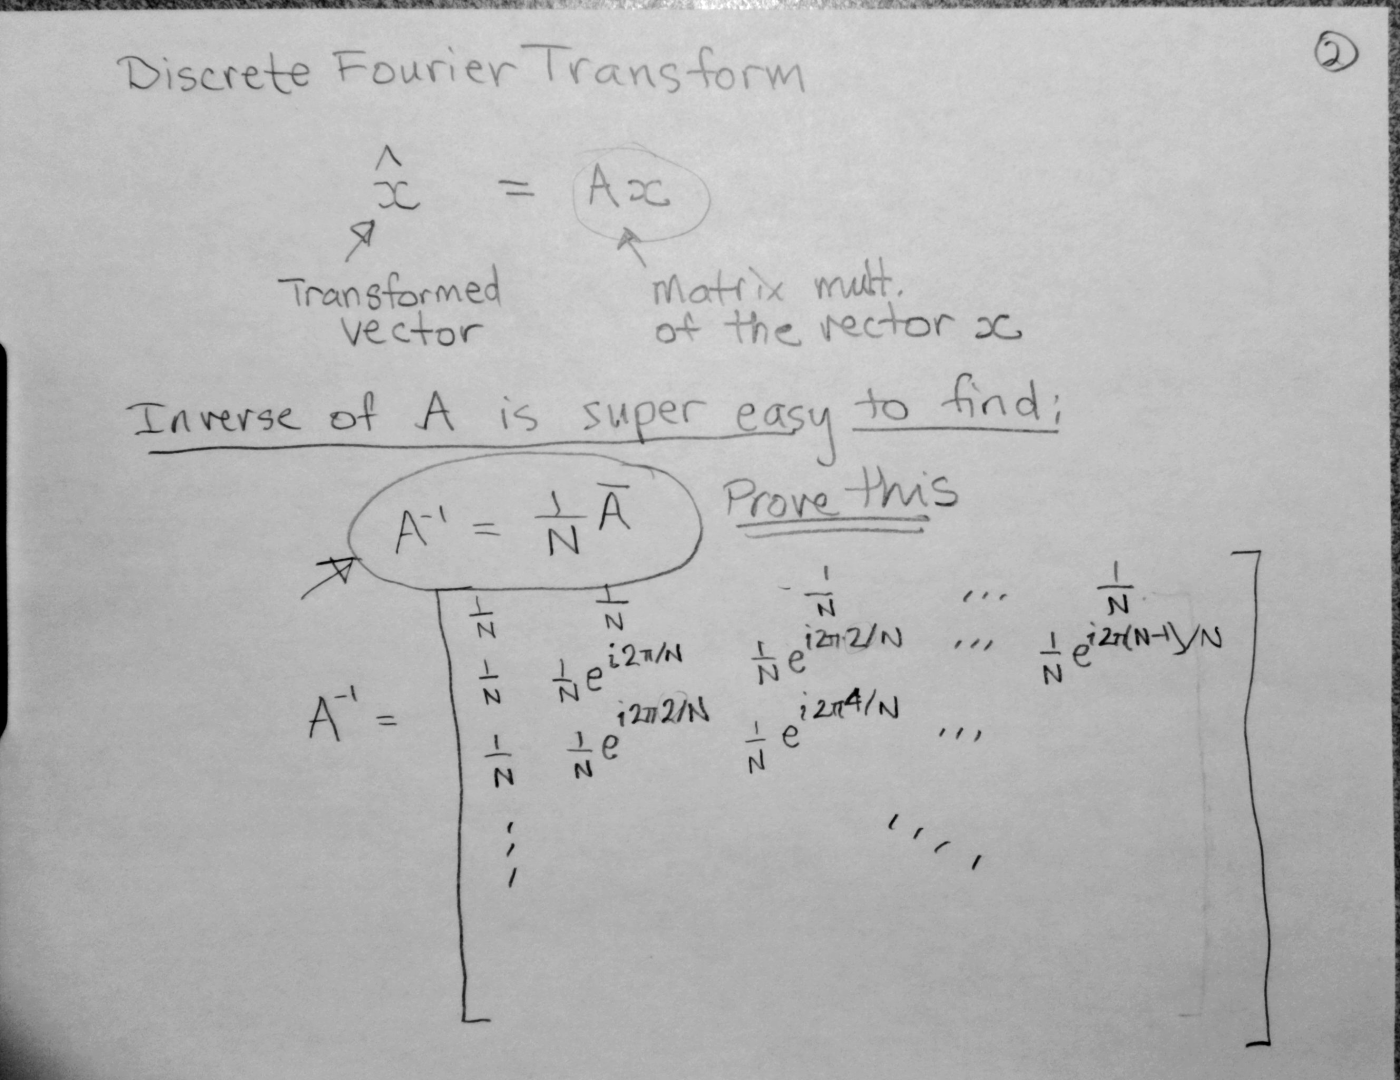 ②
Discrete Fourier Transform
x̂ = Ax
Transformed
vector
Matrix mult.
of the vector x
Inverse of A is super easy to find:
A⁻¹ = 1/N Ā Prove this
1/N 1/N 1/N ... 1/N
1/N 1/N e^{i2π/N} 1/N e^{i2π·2/N} ... 1/N e^{i2π(N-1)/N}
A⁻¹ =
1/N 1/N e^{i2π2/N} 1/N e^{i2π4/N} ...